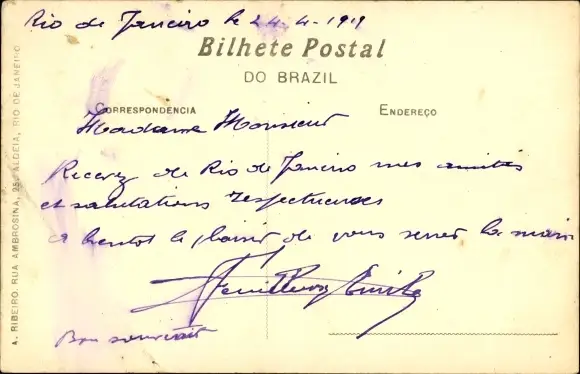 Rio de Janeiro le 24-4-1919
Bilhete Postal
DO BRAZIL
CORRESPONDENCIA
ENDEREÇO
Madame Monsieur
Recevez de Rio de Janeiro mes amitiés
et salutations respectueuses
a bientot le plaisir de vous serrer la main
Bon souvenir
A. RIBEIRO. RUA AMBROSINA, ALDEIA, RIO DE JANEIRO